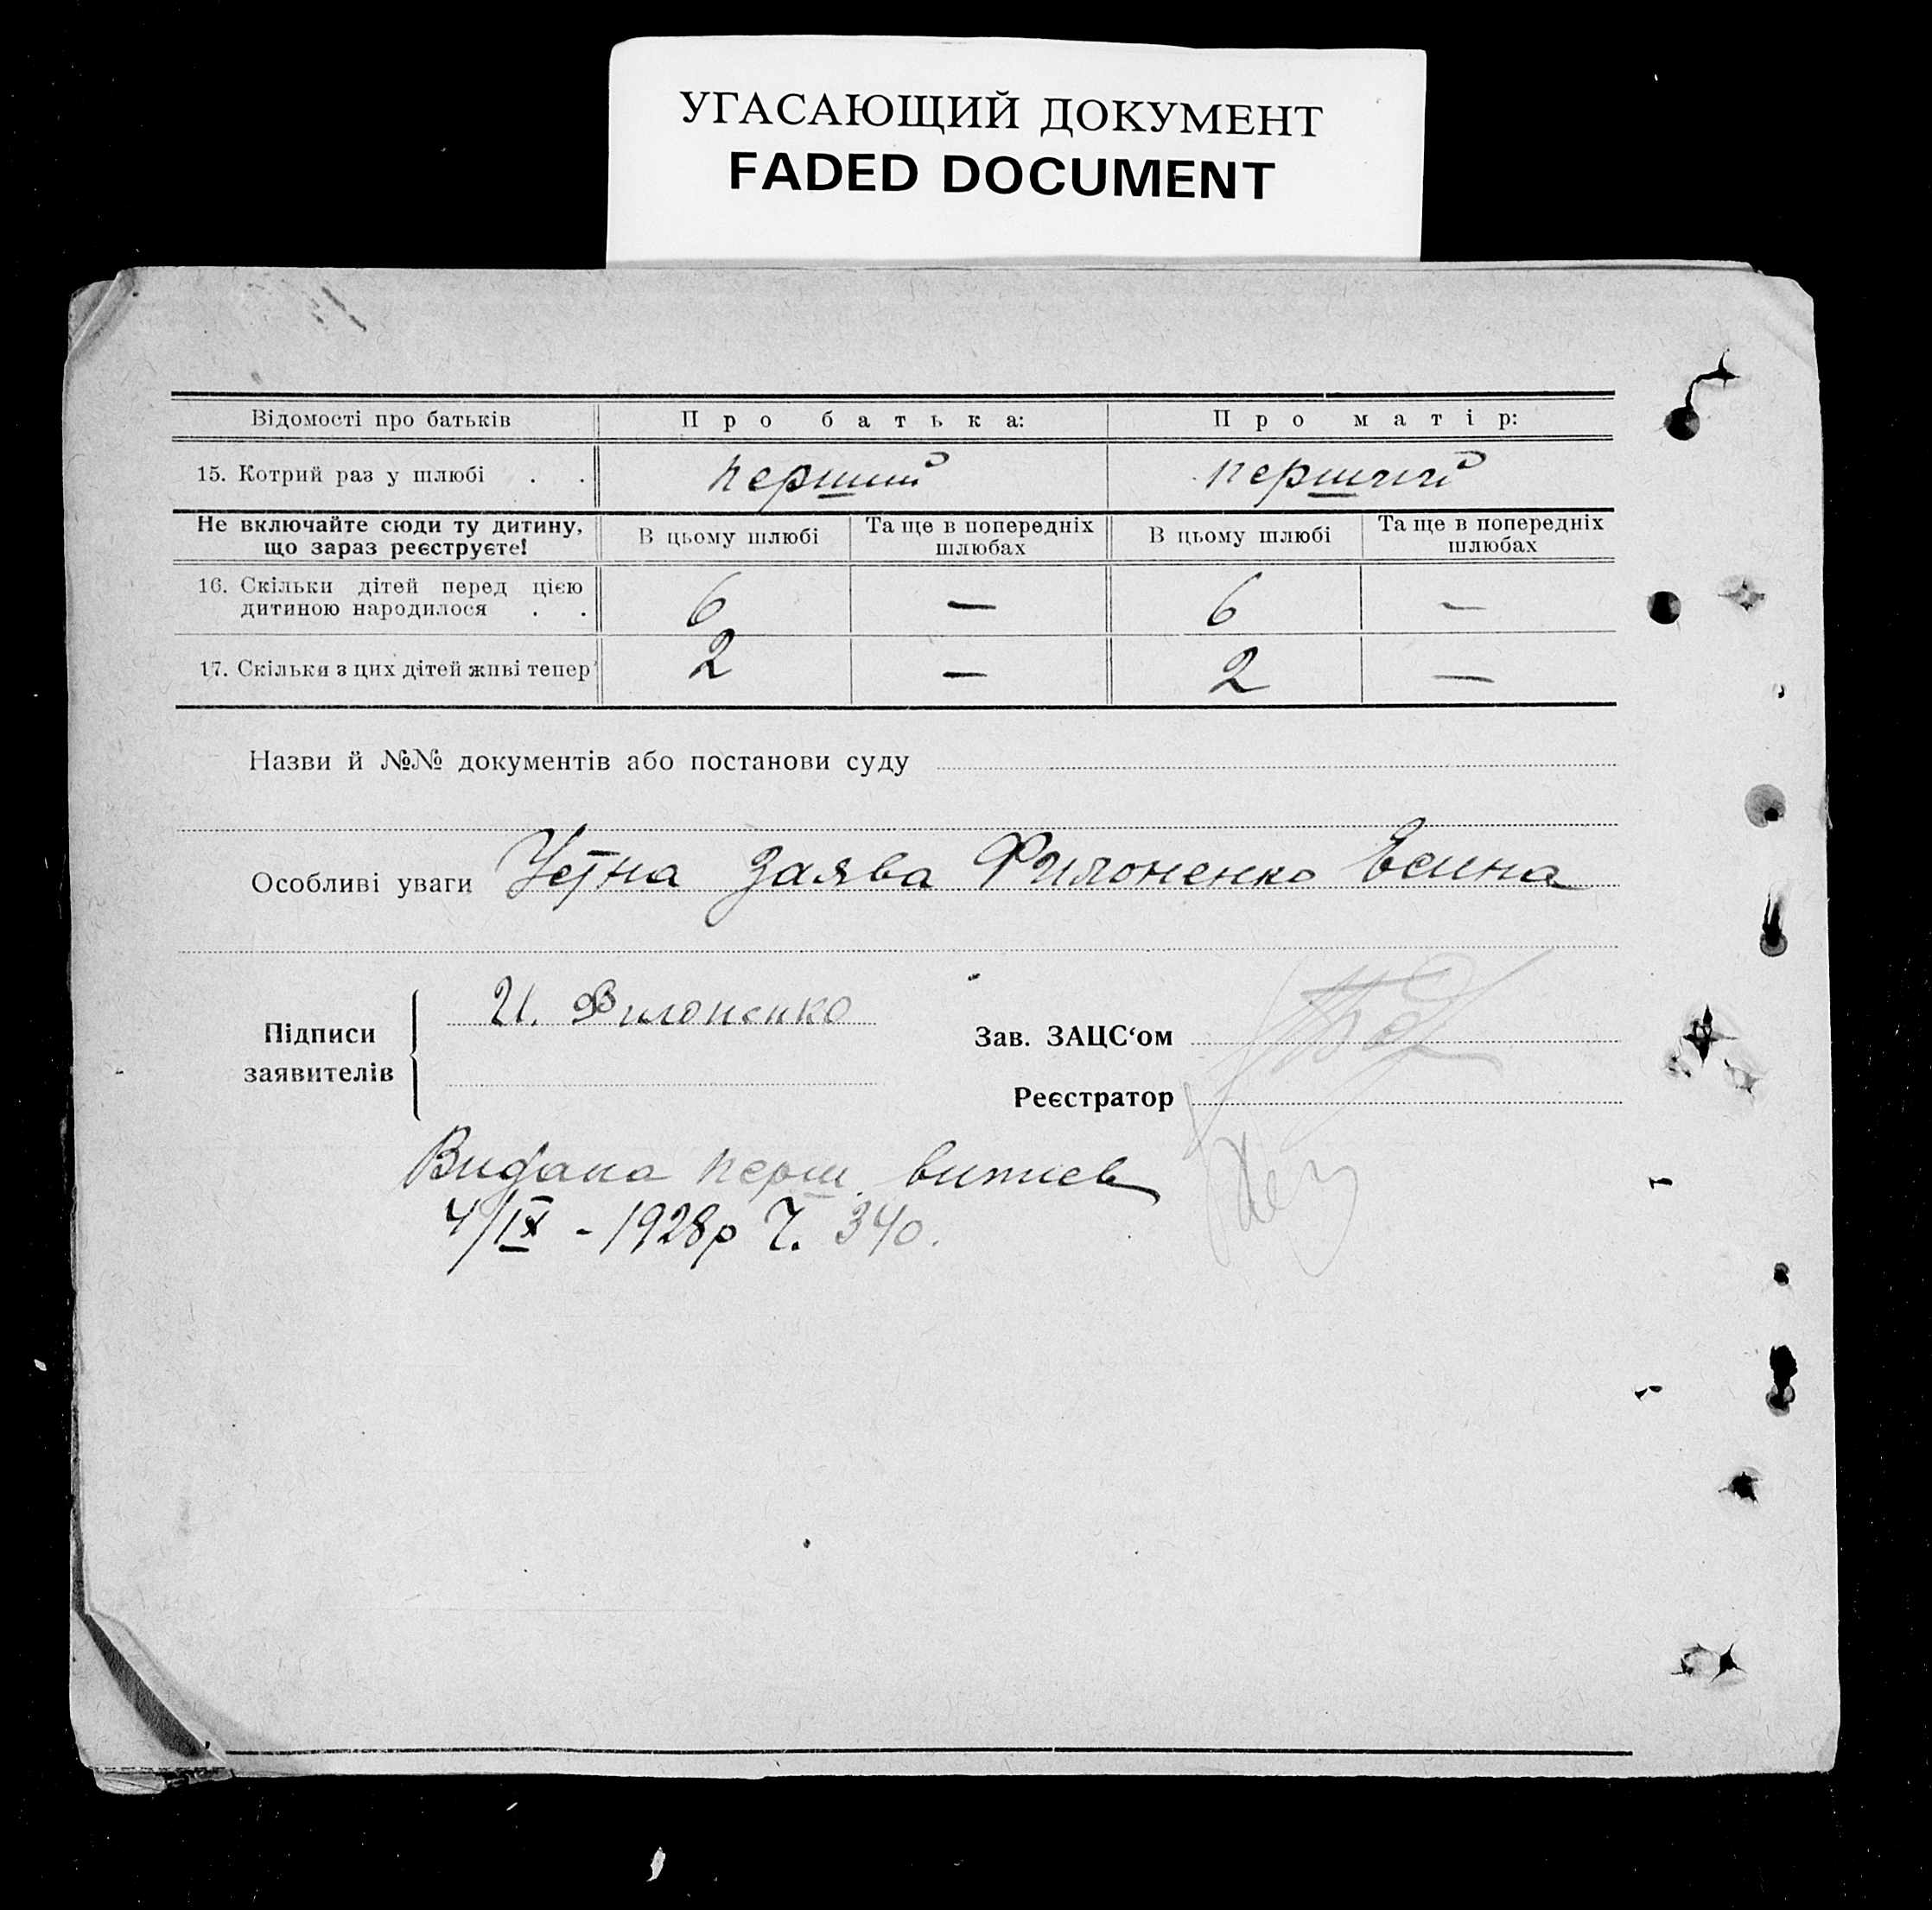 УГАСАЮЩИЙ ДОКУМЕНТ
FADED DOCUMENT
Відомості про батьків Про батька: Про матір:
15. Котрий раз у шлюбі . . перший перший
Не включайте сюди ту дитину, що зараз реєструєте! В цьому шлюбі Та ще в попередніх шлюбах В цьому шлюбі Та ще в попередніх шлюбах
16. Скільки дітей перед цією дитиною народилося . . 6 — 6 —
17. Скільки з цих дітей живі тепер 2 — 2 —
Назви й №№ документів або постанови суду
Особливі уваги Устна заява Филоненко
Підписи заявителів И. Филоненко
Зав. ЗАЦС‘ом
Реєстратор
Видана перш. витяг
4/IX - 1928р Ч. 340.